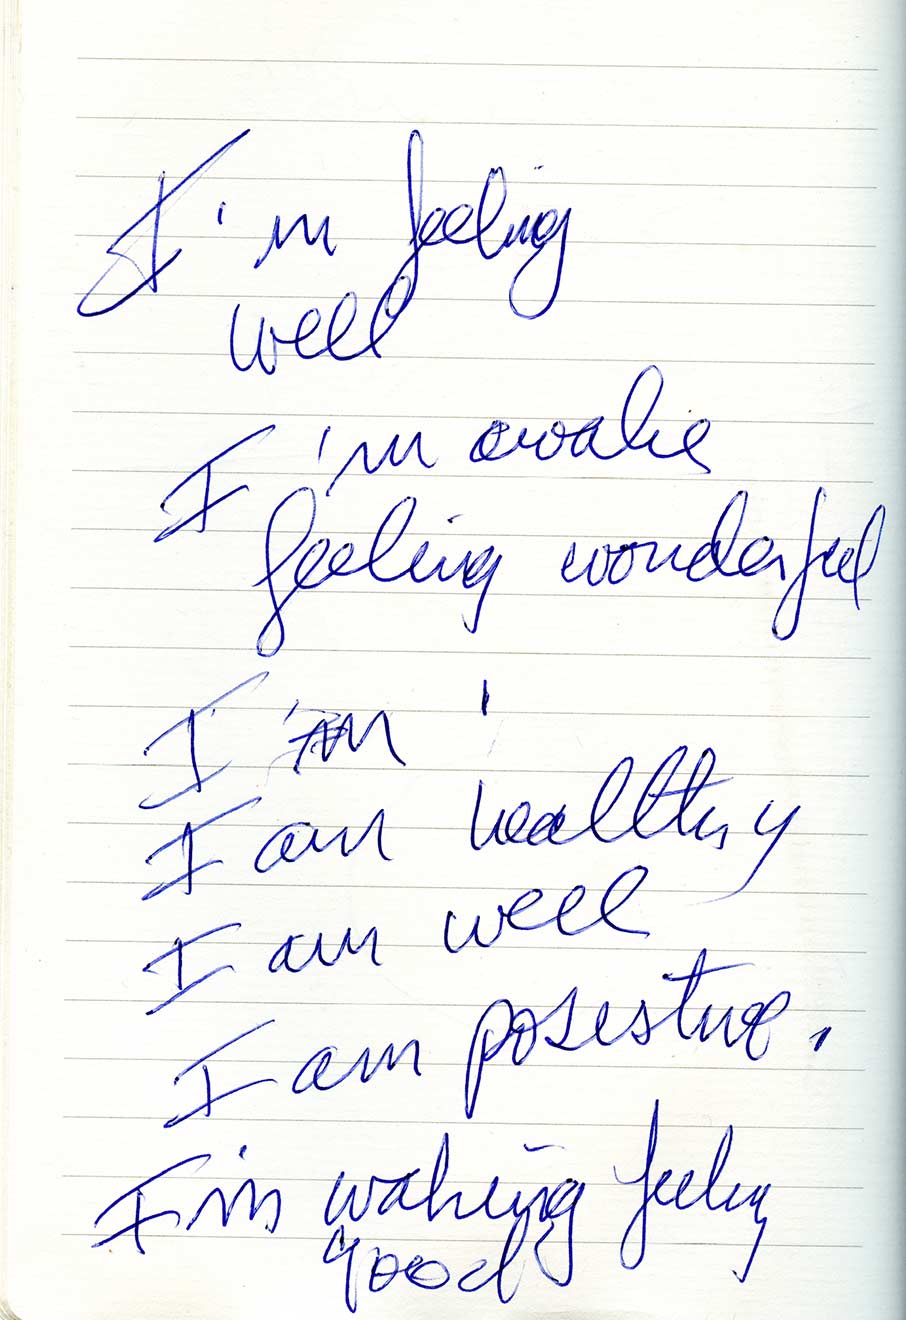 I'm feeling
well
I'm awake
feeling wonderful
I'm
I am healthy
I am well
I am
I'm waking feeling
good